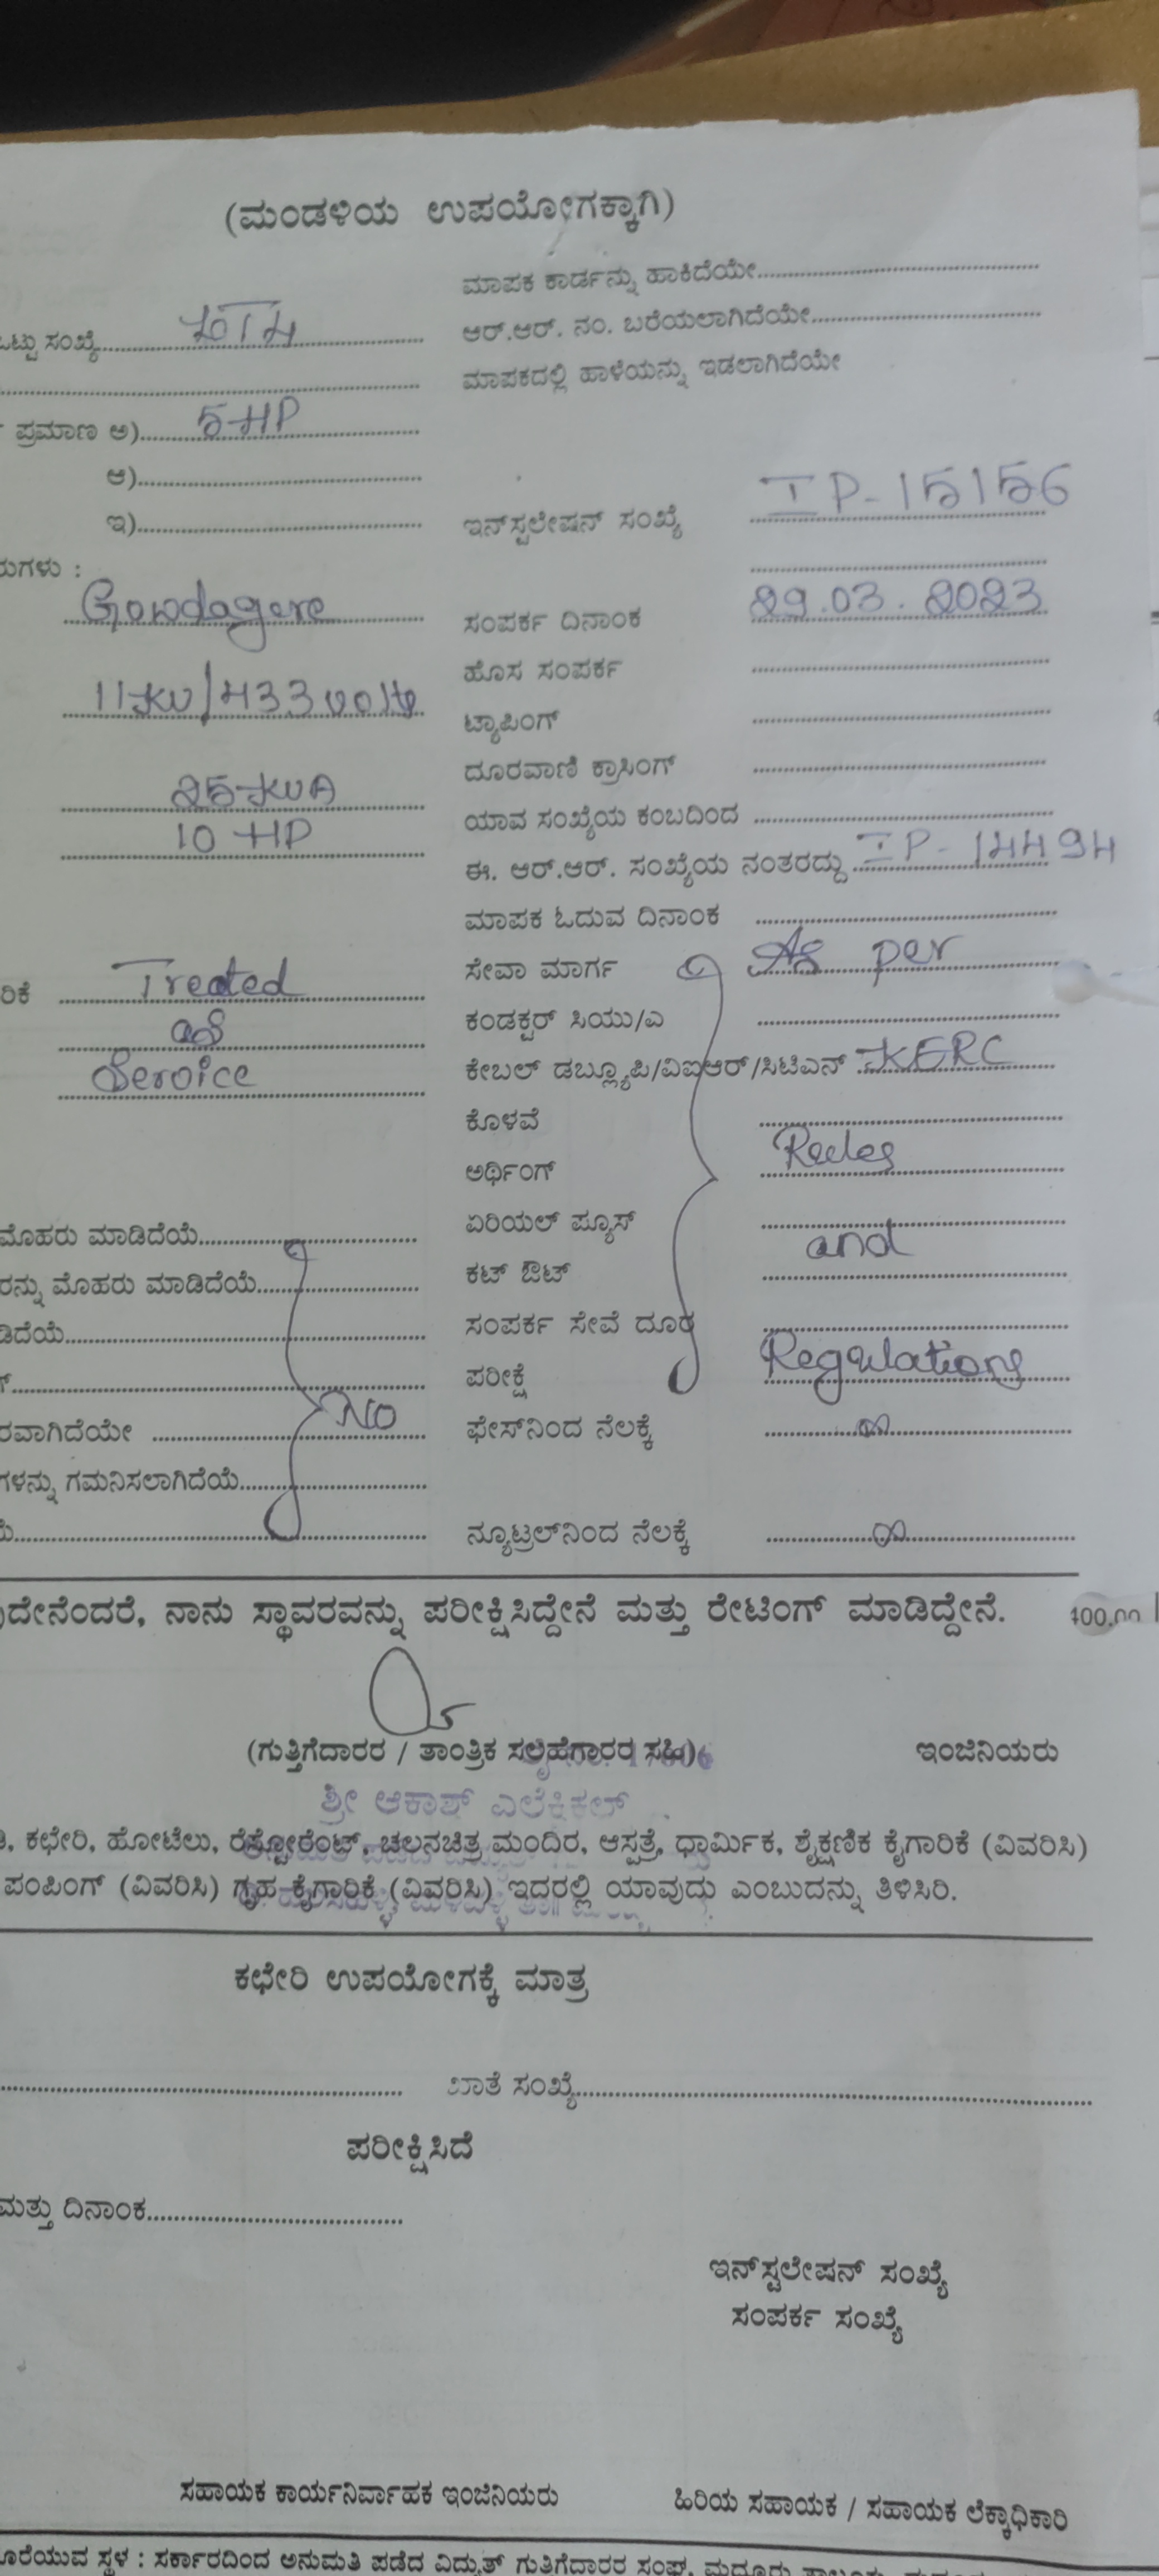 (ಮಂಡಳಿಯ ಉಪಯೋಗಕ್ಕಾಗಿ)
ಮಾಪಕ ಕಾರ್ಡನ್ನು ಹಾಕಿದೆಯೇ
ಒಟ್ಟು ಸಂಖ್ಯೆ LT4 ಆರ್.ಆರ್. ನಂ. ಬರೆಯಲಾಗಿದೆಯೇ
ಮಾಪಕದಲ್ಲಿ ಹಾಳೆಯನ್ನು ಇಡಲಾಗಿದೆಯೇ
ಪ್ರಮಾಣ ಅ) 5 HP
ಆ)
ಇ) ಇನ್‌ಸ್ಟಲೇಷನ್ ಸಂಖ್ಯೆ IP-15156
ರುಗಳು :
Gowdagere ಸಂಪರ್ಕ ದಿನಾಂಕ 29.03.2023
ಹೊಸ ಸಂಪರ್ಕ
11KV/433 volts ಟ್ಯಾಪಿಂಗ್
ದೂರವಾಣಿ ಕ್ರಾಸಿಂಗ್
25 KVA ಯಾವ ಸಂಖ್ಯೆಯ ಕಂಬದಿಂದ
10 HP ಈ. ಆರ್.ಆರ್. ಸಂಖ್ಯೆಯ ನಂತರದ್ದು IP-14494
ಮಾಪಕ ಓದುವ ದಿನಾಂಕ
ರಿಕೆ Treated ಸೇವಾ ಮಾರ್ಗ As per
as ಕಂಡಕ್ಟರ್ ಸಿಯು/ಎ
Service ಕೇಬಲ್ ಡಬ್ಲ್ಯೂಪಿ/ವಿಐಆರ್/ಸಿಟಿಎನ್ KERC
ಕೊಳವೆ
ಅರ್ಥಿಂಗ್ Rules
ಮೊಹರು ಮಾಡಿದೆಯೆ ಏರಿಯಲ್ ಪ್ಯೂಸ್
ರನ್ನು ಮೊಹರು ಮಾಡಿದೆಯೆ ಕಟ್ ಔಟ್ and
ಡಿದೆಯೆ ಸಂಪರ್ಕ ಸೇವೆ ದೂರ
ಪರೀಕ್ಷೆ Regulations
ರವಾಗಿದೆಯೇ No ಫೇಸ್‌ನಿಂದ ನೆಲಕ್ಕೆ ∞
ಗಳನ್ನು ಗಮನಿಸಲಾಗಿದೆಯೆ
ನ್ಯೂಟ್ರಲ್‌ನಿಂದ ನೆಲಕ್ಕೆ ∞
ದೇನೆಂದರೆ, ನಾನು ಸ್ಥಾವರವನ್ನು ಪರೀಕ್ಷಿಸಿದ್ದೇನೆ ಮತ್ತು ರೇಟಿಂಗ್ ಮಾಡಿದ್ದೇನೆ.
(ಗುತ್ತಿಗೆದಾರರ / ತಾಂತ್ರಿಕ ಸಲಹೆಗಾರರ ಸಹಿ) ಇಂಜಿನಿಯರು
ಶ್ರೀ ಆಕಾಶ್ ಎಲೆಕ್ಟ್ರಿಕಲ್
ಕಛೇರಿ, ಹೋಟೆಲು, ರೆಸ್ಟೋರೆಂಟ್, ಚಲನಚಿತ್ರ ಮಂದಿರ, ಆಸ್ಪತ್ರೆ, ಧಾರ್ಮಿಕ, ಶೈಕ್ಷಣಿಕ ಕೈಗಾರಿಕೆ (ವಿವರಿಸಿ)
ಪಂಪಿಂಗ್ (ವಿವರಿಸಿ) ಗೃಹ ಕೈಗಾರಿಕೆ (ವಿವರಿಸಿ) ಇದರಲ್ಲಿ ಯಾವುದು ಎಂಬುದನ್ನು ತಿಳಿಸಿರಿ.
ಕಛೇರಿ ಉಪಯೋಗಕ್ಕೆ ಮಾತ್ರ
ಖಾತೆ ಸಂಖ್ಯೆ
ಪರೀಕ್ಷಿಸಿದೆ
ಮತ್ತು ದಿನಾಂಕ
ಇನ್‌ಸ್ಟಲೇಷನ್ ಸಂಖ್ಯೆ
ಸಂಪರ್ಕ ಸಂಖ್ಯೆ
ಸಹಾಯಕ ಕಾರ್ಯನಿರ್ವಾಹಕ ಇಂಜಿನಿಯರು ಹಿರಿಯ ಸಹಾಯಕ / ಸಹಾಯಕ ಲೆಕ್ಕಾಧಿಕಾರಿ
ದೊರೆಯುವ ಸ್ಥಳ : ಸರ್ಕಾರದಿಂದ ಅನುಮತಿ ಪಡೆದ ವಿದ್ಯುತ್ ಗುತ್ತಿಗೆದಾರರ ಸಂಘ, ಮದ್ದೂರು